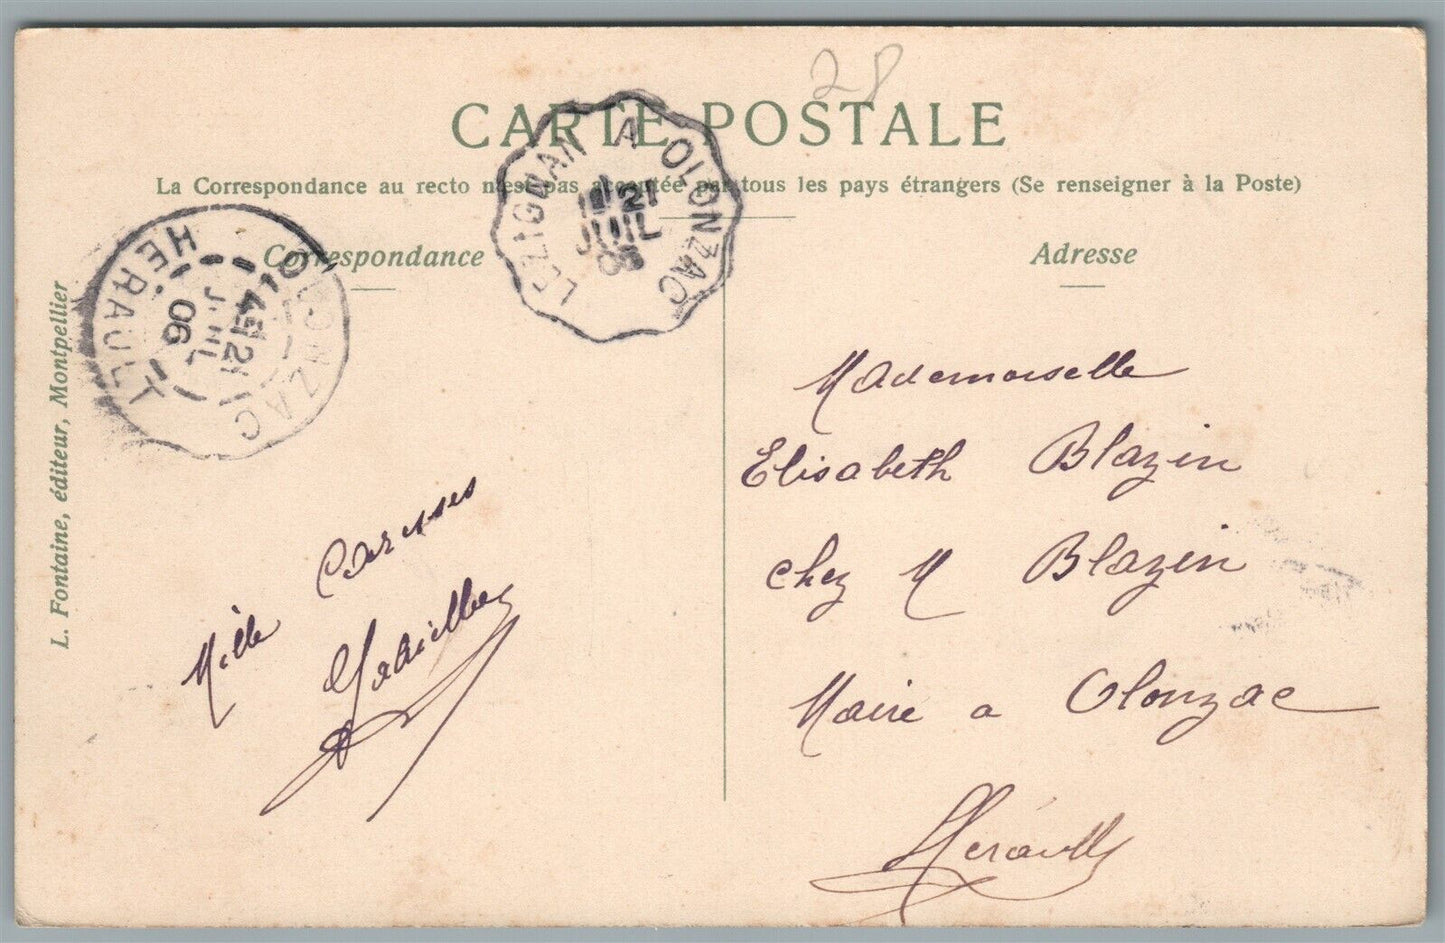 28
CARTE POSTALE
La Correspondance au recto n'est pas acceptée par tous les pays étrangers (Se renseigner à la Poste)
Correspondance
Adresse
LEZIGNAN A OLONZAC
21
JUIL
06
OLONZAC
HÉRAULT
21
JUIL
06
L. Fontaine, éditeur, Montpellier
Mille Caresses
Gabrielle
Mademoiselle
Elisabeth Blazin
chez M Blazin
Maire a Olonzac
Herault